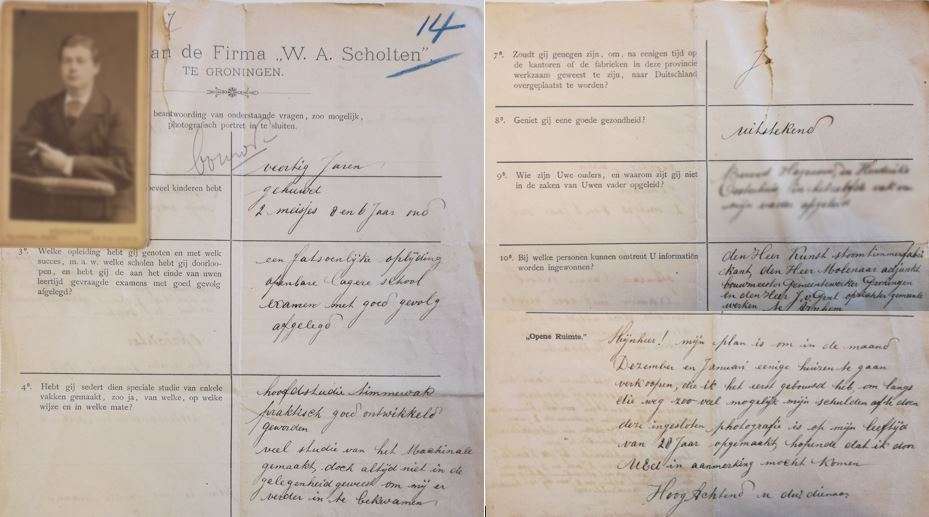 14
7
an de Firma „W. A. Scholten”
TE GRONINGEN.
beantwoording van onderstaande vragen, zoo mogelijk,
photografisch portret in te sluiten.
veertig Jaren
eveel kinderen hebt
gehuwd
2 meisjes 8 en 6 Jaar oud
3°. Welke opleiding hebt gij genoten en met welk
succes, m. a. w. welke scholen hebt gij doorloo-
pen, en hebt gij de aan het einde van uwen
leertijd gevraagde examens met goed gevolg
afgelegd?
een fatsoenlijke oplijding
openbare Lagere school
examen met goed gevolg
afgelegd
4°. Hebt gij sedert dien speciale studie van enkele
vakken gemaakt, zoo ja, van welke, op welke
wijze en in welke mate?
hoofdstudie timmervak
praktisch goed ontwikkeld
geworden
veel studie van het Machinale
gemaakt, doch altijd niet in de
gelegenheid geweest om mij er
verder in te bekwamen
7°. Zoudt gij genegen zijn, om, na eenigen tijd op
de kantoren of de fabrieken in deze provincie
werkzaam geweest te zijn, naar Duitschland
overgeplaatst te worden?
Ja
8°. Geniet gij eene goede gezondheid?
uitstekend
9°. Wie zijn Uwe ouders, en waarom zijt gij niet
in de zaken van Uwen vader opgeleid?
en Hendrika
mijn vader opgeleid
10°. Bij welke personen kunnen omtrent U informatiën
worden ingewonnen?
den Heer Kunst stoomtimmerfabri
kant, den Heer Molenaar adjunkt
bouwmeester Gemeentewerken Groningen
en den Heer opzichter gemeente
werken te Arnhem
„Opene Ruimte.”
Mijnheer! mijn plan is om in de maand
Dezember en Januari eenige huizen te gaan
verkoopen, die ik het eerst gebouwd heb om langs
die weg zoo veel mogelijk mijn schulden af te doen
deze ingesloten photografie is op mijn leeftijd
van 28 Jaar opgemaakt, hopende dat ik door
UEd in aanmerking mocht komen
Hoog Achtend u dw dienaar